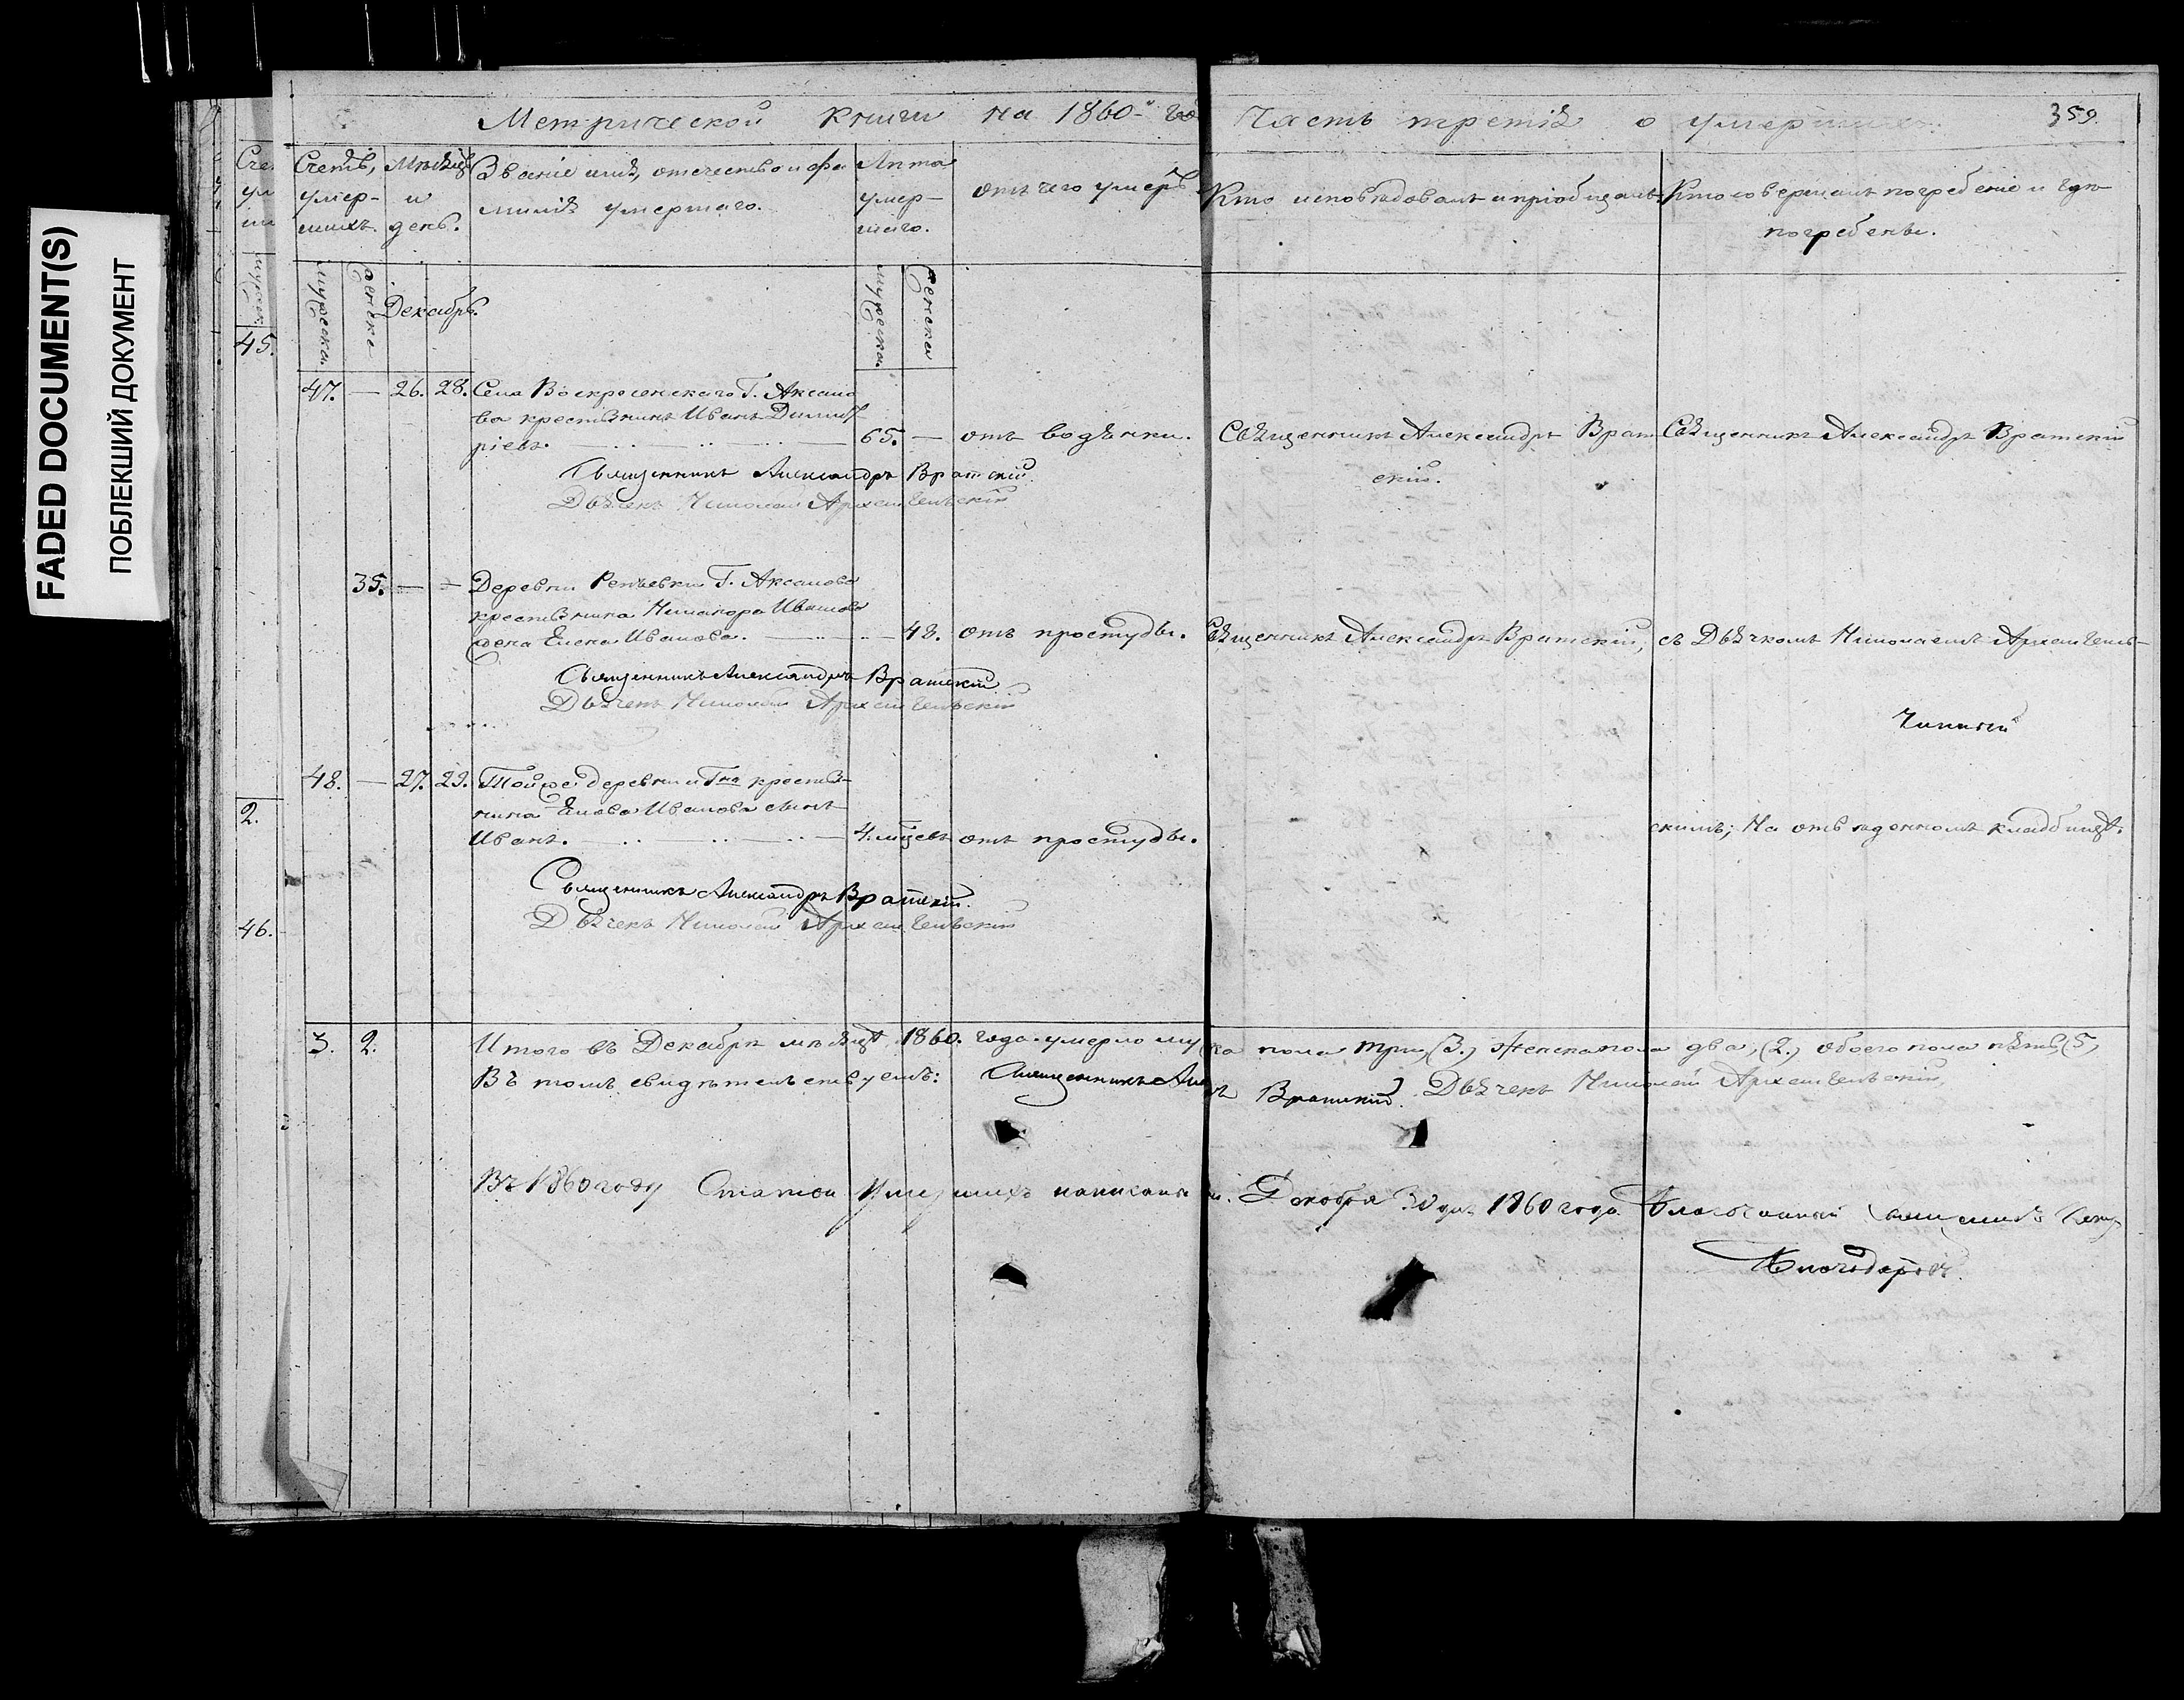 FADED DOCUMENT(S)
ПОБЛЕКШИЙ ДОКУМЕНТ
Метрической книги на 1860й го
Часть третія о умершихъ
359.
Счетъ умер-шихъ.
Мѣсяцъ и день.
Званіе имя, отечество и фа
милія умершаго.
Лѣта умер-шаго.
отъ чего умеръ
Кто исповѣдовалъ и пріобщалъ.
Кто совершалъ погребеніе и гдѣ
погребены.
Мужеска.
Женска
Декабрь.
Мужеска.
Женска
45.
47. — 26. 28. Села Воскресенскаго Г. Аксако
ва крестьянинъ Иванъ Димит
ріевъ. 65. — отъ водянки. Священникъ Александръ Врат
скій.
Священникъ Александръ Вратскій
Священникъ Александръ Вратскій.
Дьячекъ Николай Архангельскій
35. — — Деревни Репьевки Г. Аксакова
крестьянина Никанора Иванова
жена Елена Иванова. — 48. отъ простуды. Священникъ Александръ Вратскій,
съ Дьячкомъ Николаемъ Архангель-
Священникъ Александръ Вратскій
Дьячекъ Николай Архангельскій
2.
48. — 27. 29. Той же деревни и Гна крестья-
нина Иванова сынъ
Иванъ. — 4. мцевъ отъ простуды.
скимъ; На отведенномъ кладбищѣ.
Священникъ Александръ Вратскій.
Дьячекъ Николай Архангельскій
46.
3. 2. Итого въ Декабрѣ мѣсяцѣ 1860. года умерло му
ска пола три, (3.) женска пола два, (2.) обоего пола пять, (5,
Въ томъ свидѣтельствуемъ: Священникъ Але
ръ Вратскій. Дьячекъ Николай Архангельскій,
Въ 1860 году Статьи умершихъ написаны
Декабря 30 дня 1860 года. Благочинный священникъ